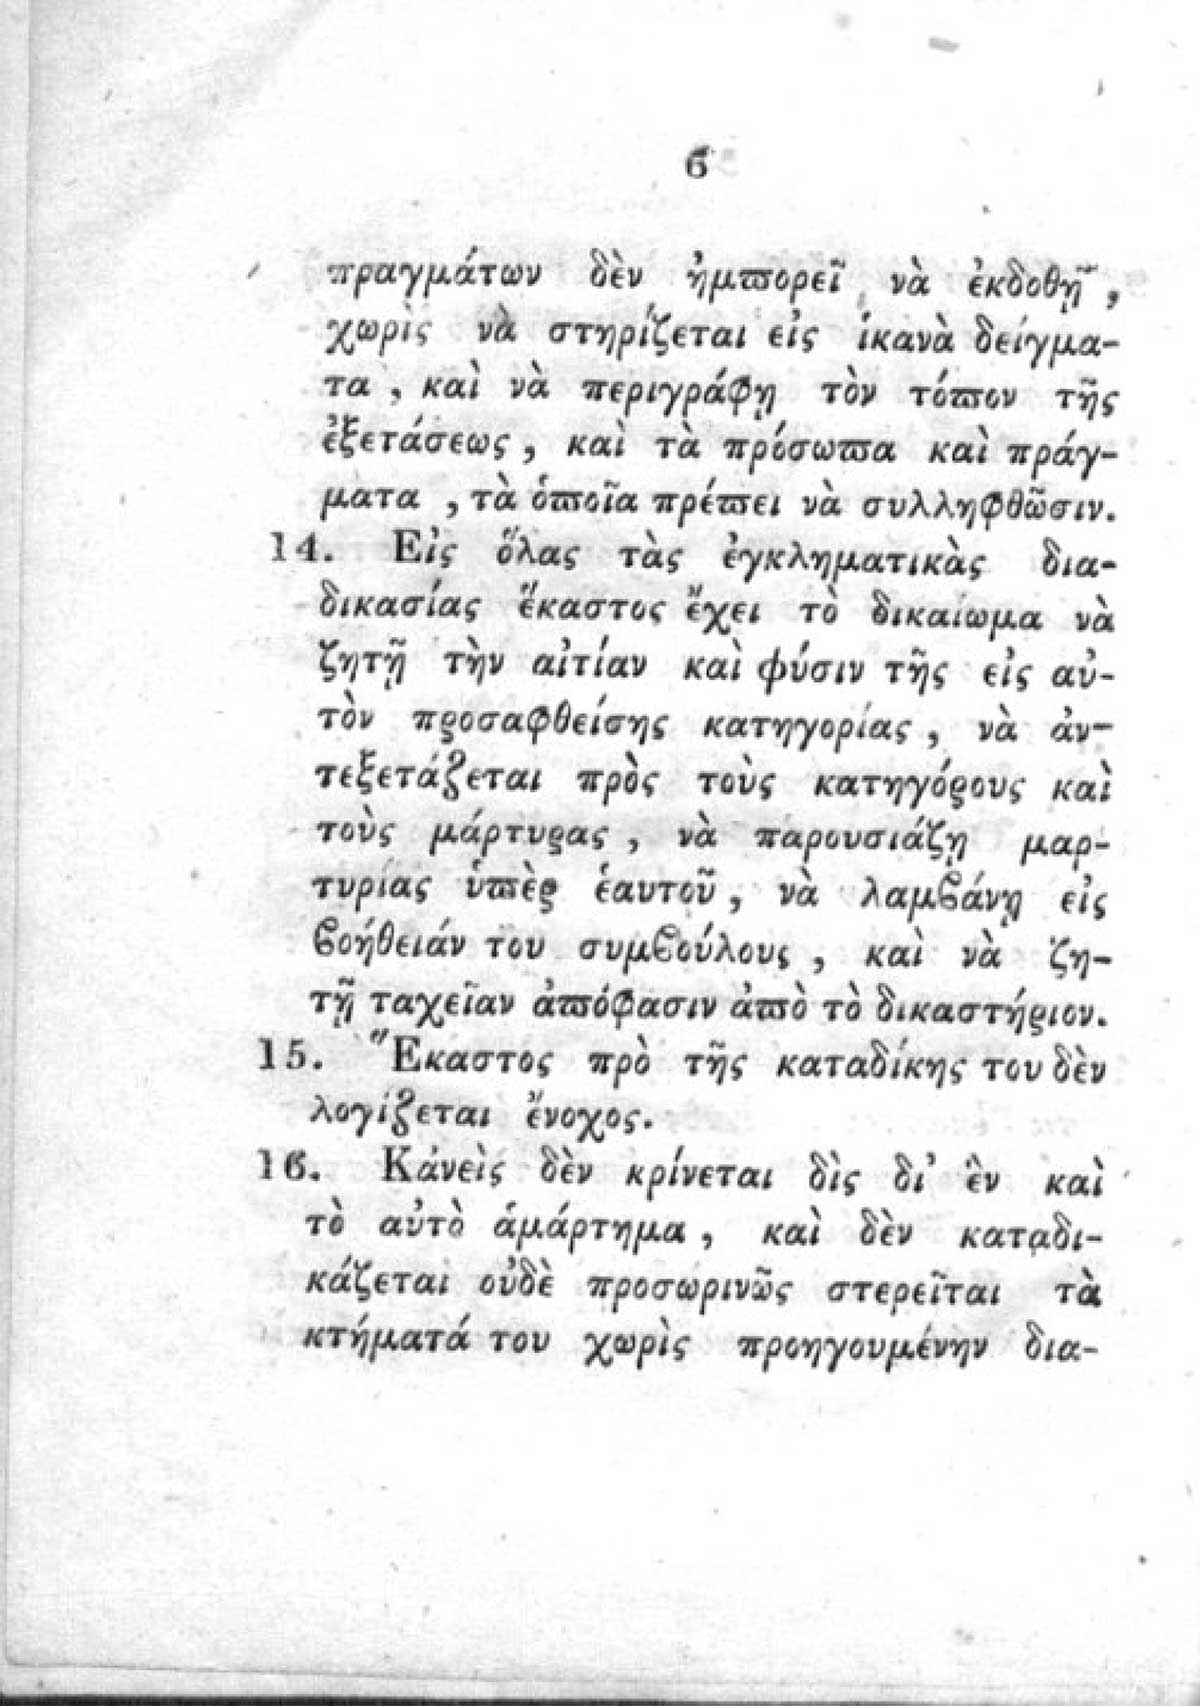 6
πραγμάτων δὲν ἠμϖορεῖ νὰ ἐκδοθῇ,
χωρὶς νὰ στηρίζεται εἰς ἱκανὰ δείγμα-
τα, καὶ νὰ περιγράφῃ τὸν τόϖον τῆς
ἐξετάσεως, καὶ τὰ πρόσωϖα καὶ πράγ-
ματα, τὰ ὁϖοῖα πρέϖει νὰ συλληφθῶσιν.
14. Εἰς ὅλας τὰς ἐγκληματικὰς δια-
δικασίας ἕκαστος ἔχει τὸ δικαίωμα νὰ
ζητῇ τὴν αἰτίαν καὶ φύσιν τῆς εἰς αὐ-
τὸν πϱοσαφθείσης κατηγορίας, νὰ ἀν-
τεξετάζεται πρὸς τοὺς κατηγόϱους καὶ
τοὺς μάρτυϱας, νὰ παρουσιάζῃ μαρ-
τυρίας ὑϖὲϱ ἑαυτοῦ, νὰ λαμϐάνῃ εἰς
ϐοήθειάν του συμϐούλους, καὶ νὰ ζη-
τῇ ταχεῖαν ἀϖόφασιν ἀϖὸ τὸ δικαστήϱιον.
15. Ἕκαστος πρὸ τῆς καταδίκης του δὲν
λογίζεται ἔνοχος.
16. Κἀνεὶς δὲν κρίνεται δὶς δι᾽ ἓν καὶ
τὸ αὐτὸ ἁμάρτημα, καὶ δὲν καταδι-
κάζεται οὐδὲ προσωρινῶς στερεῖται τὰ
κτήματά του χωρὶς προηγουμένην δια-